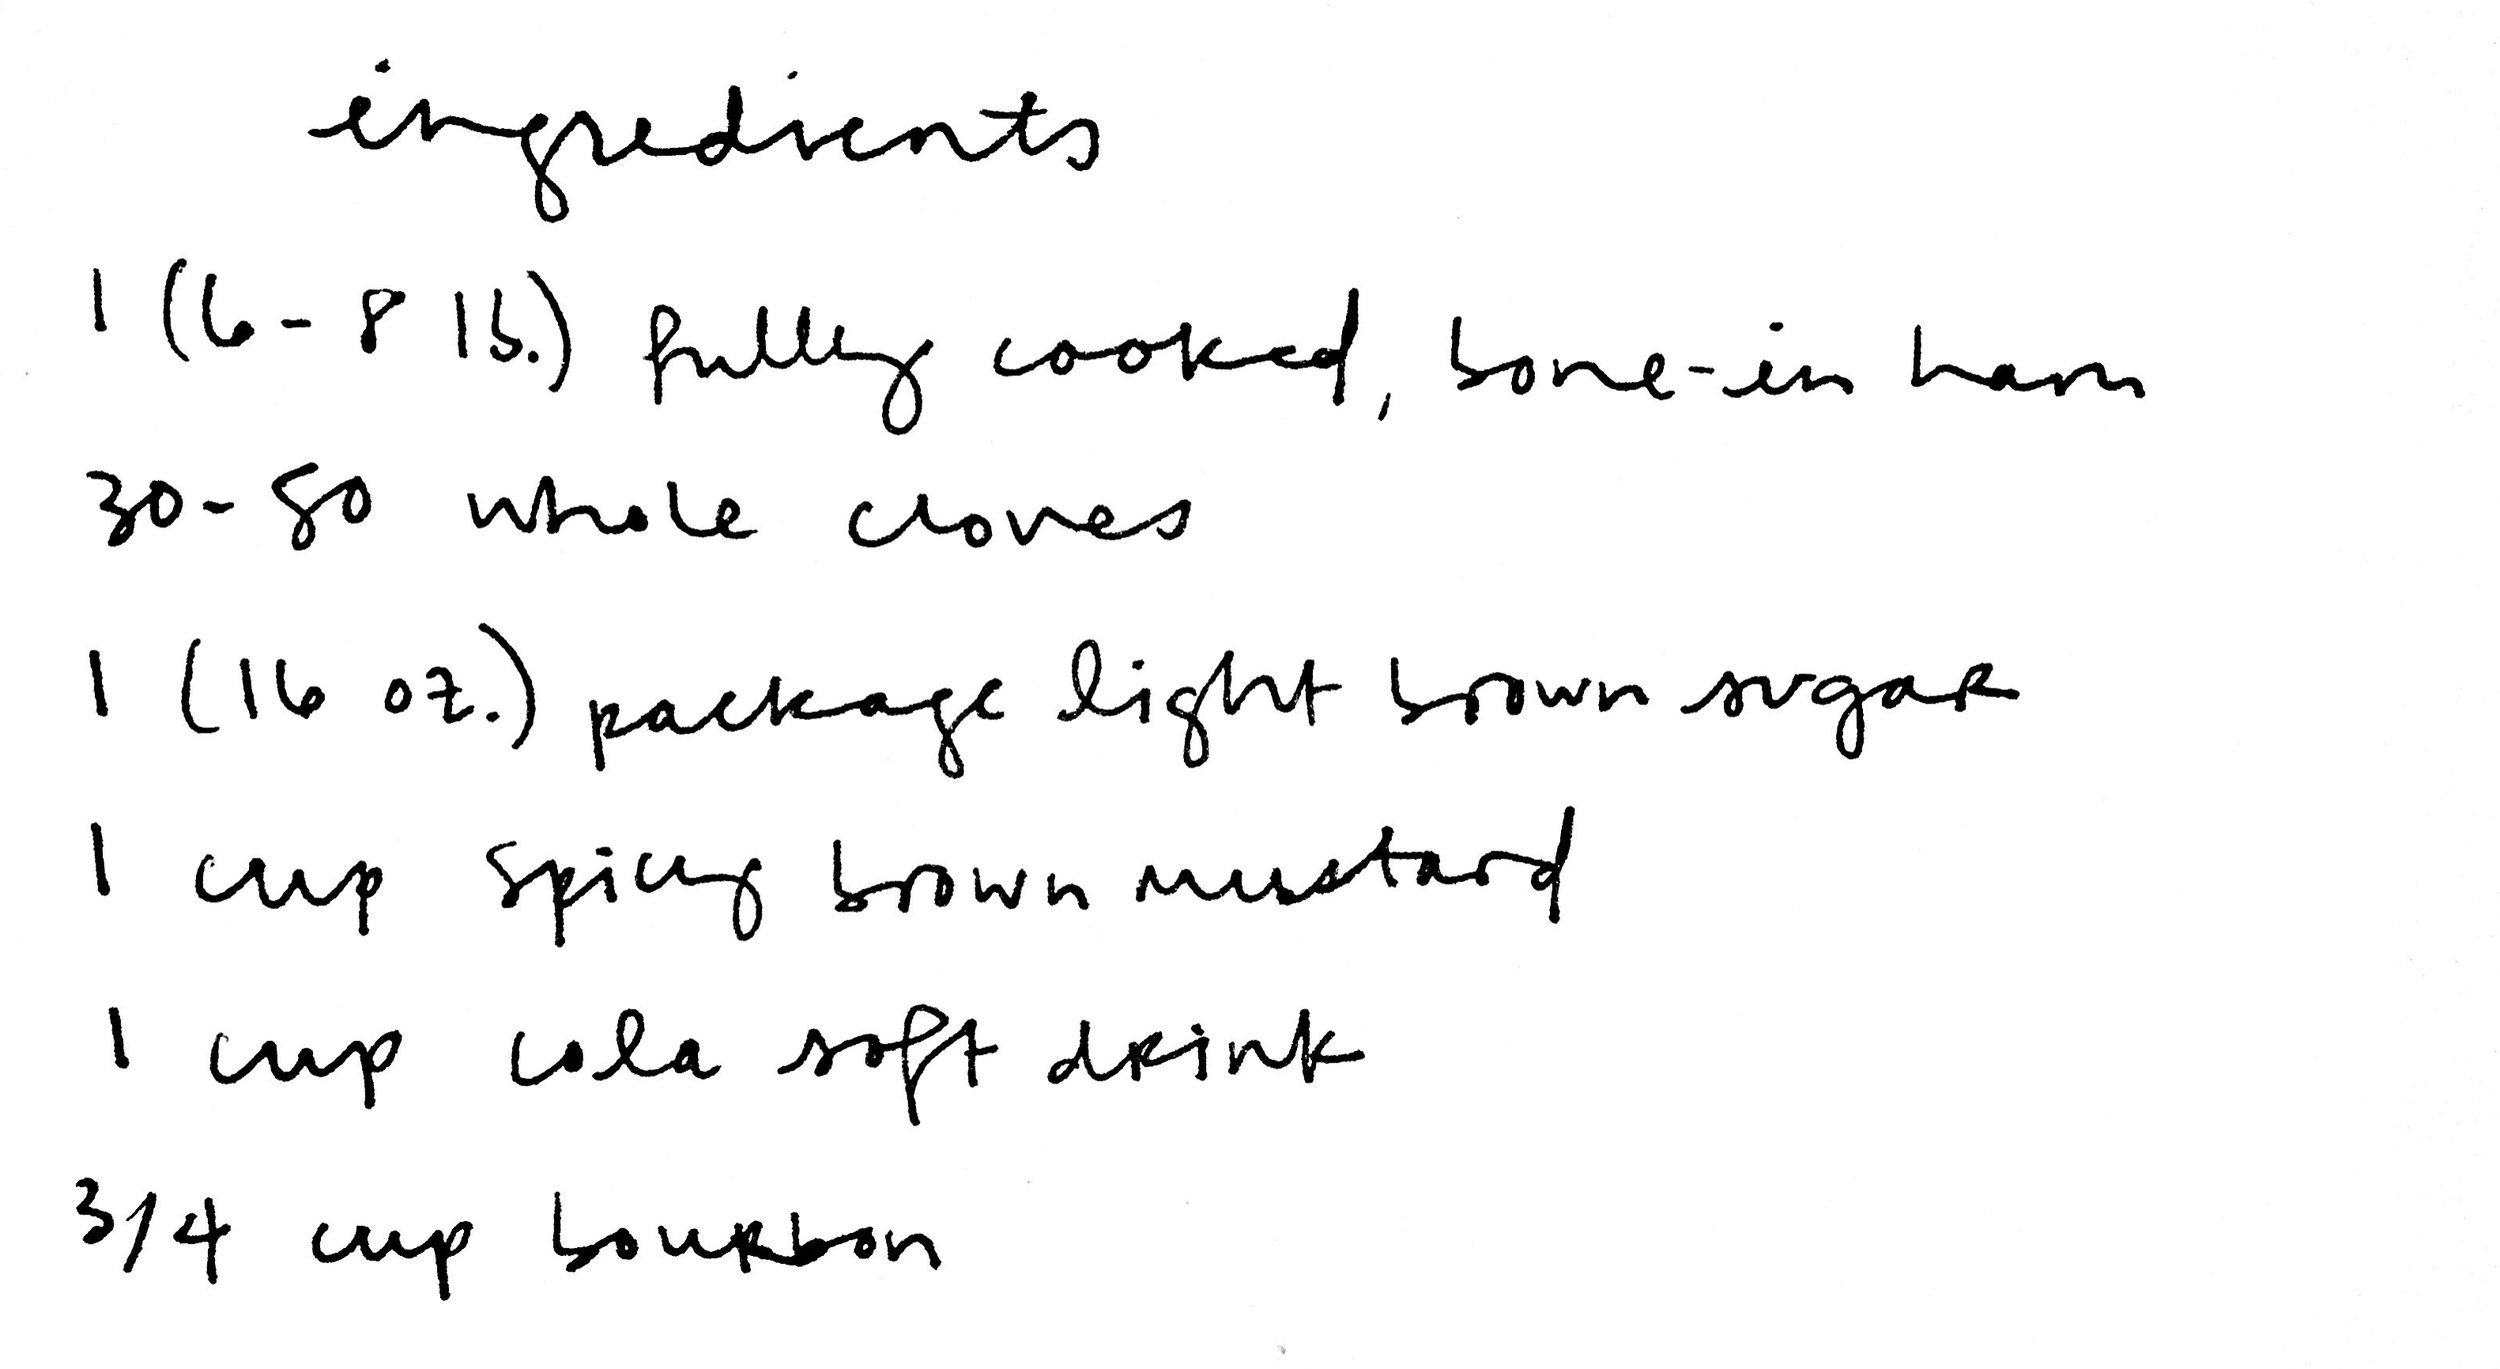 ingredients
1 (6-8 lb.) fully cooked, bone-in ham
30-80 whole cloves
1 (16 oz.) package light brown sugar
1 cup spicy brown mustard
1 cup cola soft drink
3/4 cup bourbon